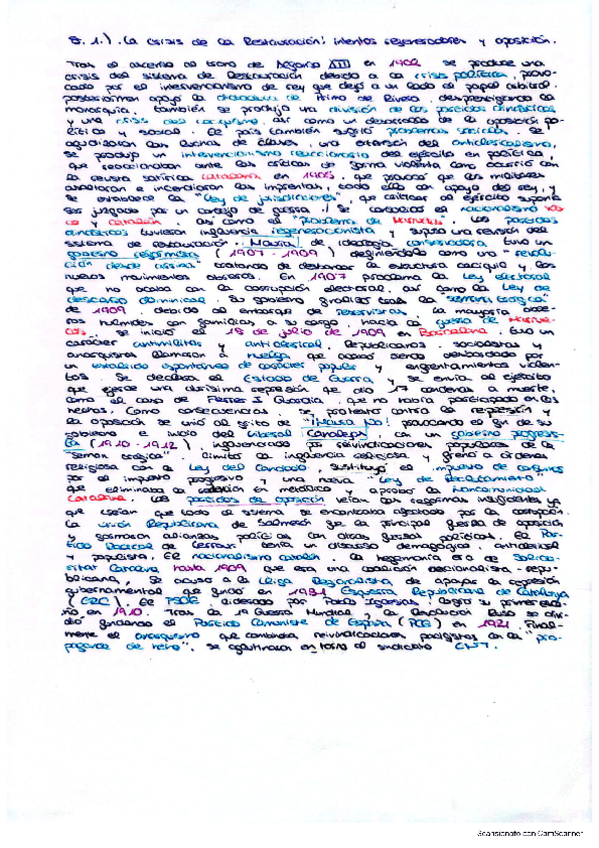 8. 1.). La crisis de la Restauración: intentos regeneradores y oposición.
Tras el ascenso al trono de Alfonso XIII en 1902 se produce una
crisis del sistema de Restauración debido a la crisis política, provo-
cada por el intervencionismo del rey que dejó a un lado el papel arbitral.
posteriormente apoyó la dictadura de Primo de Rivera, desprestigiando la
monarquía. También se produjo una división de los partidos dinásticos
y una crisis del caciquismo, así como un desarrollo de la oposición po-
lítica y social. El país también sufrió problemas sociales. Se
agudizaron las luchas de clases, una extensión del anticlericalismo,
se produjo un intervencionismo del ejército en política,
que reaccionaron ante las críticas de forma violenta como ocurrió con
la revista satírica catalana en 1905, que provocó que los militares
asaltaron e incendiaron las imprentas, todo ello con apoyo del rey, y
se estableció la "Ley de jurisdicciones", que criticar al ejército suponía
ser juzgado por un consejo de guerra. Se agudizó el nacionalismo vas-
co y catalán, así como el "problema de Marruecos". Los partidos
dinásticos tuvieron influencia regeneracionista supuso una revisión del
sistema de restauración. Maura, de ideología conservadora tuvo un
gobierno reformista (1907 - 1909) definiéndolo como una "revolu-
ción desde arriba" tratando de desmontar la estructura caciquil y los
nuevos movimientos obreros. En 1907 proclama la Ley electoral
que no acaba con la corrupción electoral, así como la Ley de
descanso dominical. Su gobierno finalizó tras la "semana trágica"
de 1909, debido al embarque de reservistas, la mayoría obre-
ros humildes con familias a su cargo hacia la guerra de Marrue-
cos, se inició el 18 de julio de 1909 en Barcelona. Tuvo un
carácter antimilitar y anticlerical. Republicanos, socialistas y
anarquistas llamaron a huelga que acabó siendo desbordado por
un estallido espontáneo de carácter popular y enfrentamientos violen-
tos. Se declaró el Estado de Guerra, y se envía al ejército
que ejerce una durísima represión que dio 17 condenas a muerte,
como el caso de Ferrer i Guardia, que no había participado en los
hechos. Como consecuencias, se protestó contra la represión y
la oposición se unió al grito de "¡Maura No!" provocando el fin de su
gobierno e inicio del liberal Canalejas, con un gobierno progresis-
ta (1910 - 1912) influenciado por reivindicaciones populares de la
"semana trágica". Limitó la influencia religiosa y frenó a órdenes
religiosas con la Ley del Candado, sustituyó el impuesto de consumos
por el impuesto progresivo y una nueva "Ley de Reclutamiento"
que eliminaba la redención en metálico, aprobó la Mancomunidad
Catalana. Los partidos de oposición veían las reformas insuficientes ya
que creían que todo el sistema se encontraba afectado por la corrupción.
La Unión Republicana de Salmerón fue la principal fuerza de oposición
y formaron alianzas políticas con otras fuerzas políticas. El Par-
tido Radical de Lerroux tenía un discurso demagógico, anticlerical
y populista. El nacionalismo catalán, la hegemonía era de Solida-
ritat Catalana hasta 1909 que era una coalición nacionalista - repu-
blicana, se acusó a la Lliga Regionalista de apoyar la represión
gubernamental que fundó en 1931 Esquerra Republicana de Catalunya
(ERC). El PSOE, liderado por Pablo Iglesias, logró su primer esca-
ño en 1910. Tras la 1ª Guerra Mundial y la Revolución Rusa se divi-
dió fundando el Partido Comunista de España (PCE) en 1921. Final-
mente el anarquismo que combinaba reivindicaciones pacifistas con la "pro-
paganda de hecho", se aglutinaron en torno al sindicato CNT.
Scansionato con CamScanner